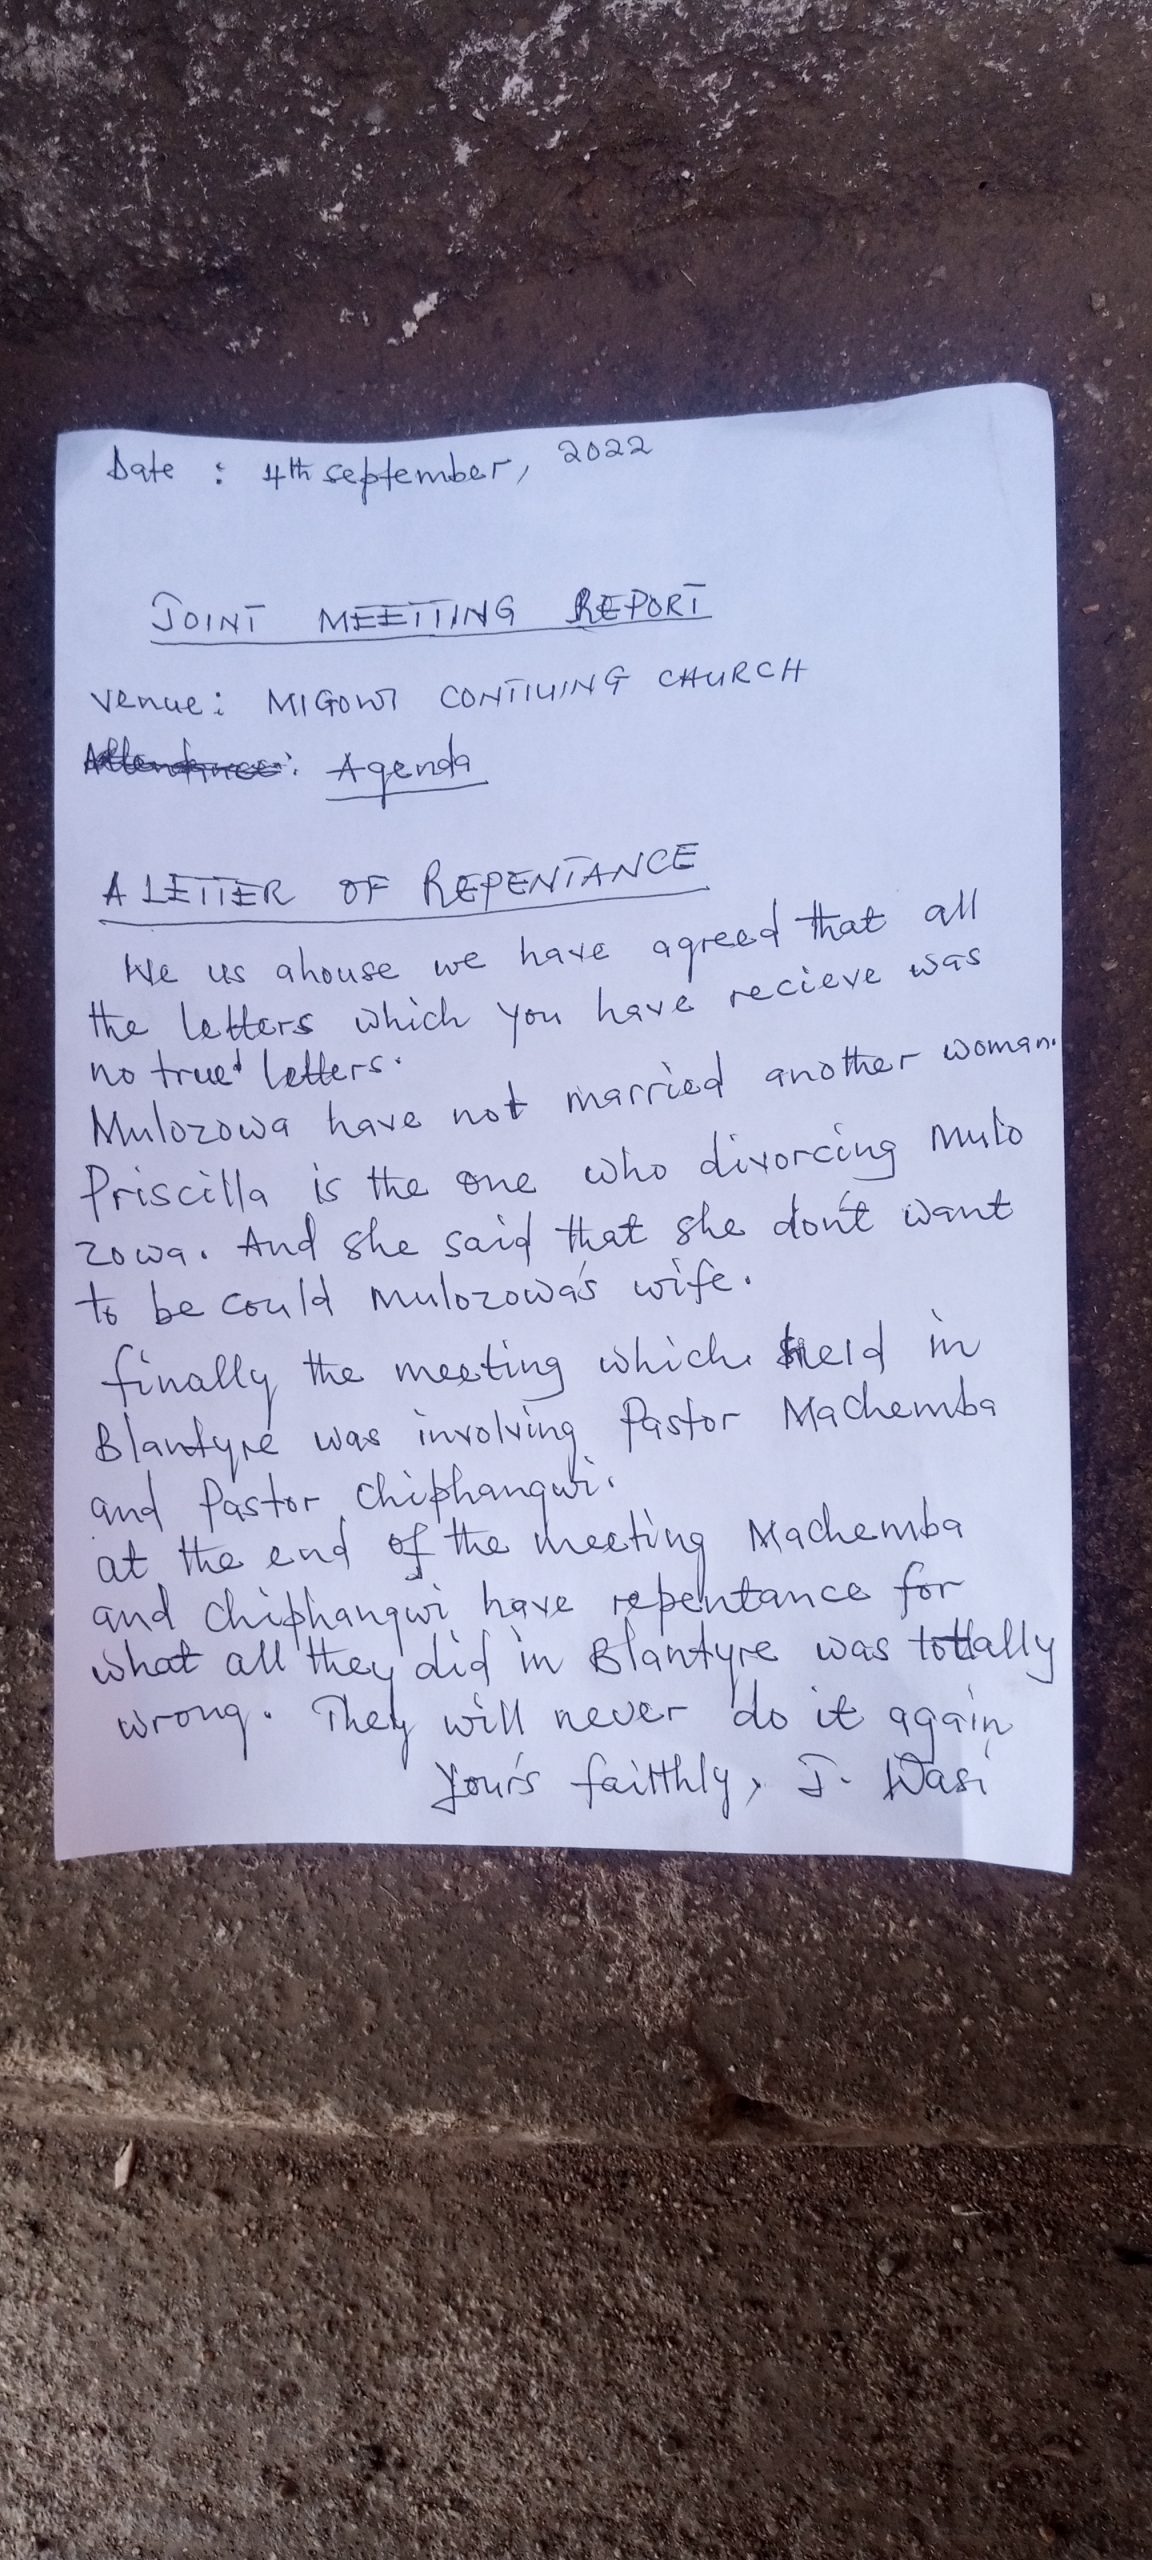 Date : 4th september, 2022
JOINT MEETTING REPORT
Venue: MIGOWI CONTIUING CHURCH
Attendance: Agenda
A LETTER OF REPENTANCE
We us ahouse we have agreed that all
the letters which you have recieve was
no true letters.
Mulozowa have not married another woman.
Priscilla is the one who divorcing Mulo
zowa. And she said that she don't want
to be could Mulozowa's wife.
finally the meeting which held in
Blantyre was involving Pastor Machemba
and Pastor Chiphangwi.
at the end of the meeting Machemba
and Chiphangwi have repentance for
what all they did in Blantyre was tottally
wrong. They will never do it again
Your's faitthly, J. Wasi